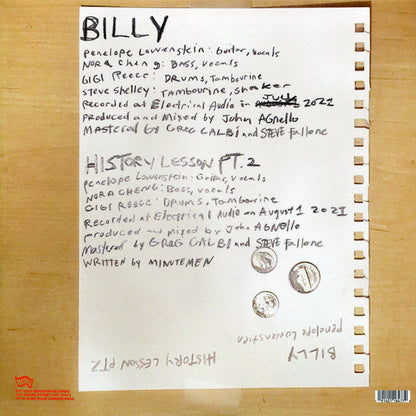 BILLY
penelope Lowenstein: Guitar, vocals
NORA Cheng: BASS, vocals
GIGI Reece: DRUMS, Tambourine
STEVE SHelley: Tambourine, shaker
JULY
Recorded at Electrical Audio in 2021
Produced and Mixed by John AGnello
Mastered by GREG CALBI and STEVE Fallone
HISTORY LESSON PT. 2
penelope Lowenstein: Guitar, vocals
NORA CHENG: Bass, vocals
GIGI REECE: DRUMS, Tambourine
RECORDED at Electrical Audio on August 1 2021
produced and mixed by John AGNELLO
Mastered by GREG CALBI and STEVE Fallone
WRITTEN by MINUTEMEN
HISTORY LESSON PT2
penelope Lowenstein
BILLY